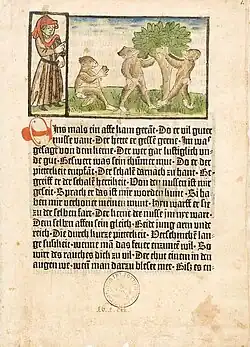 Eins mals ein affe kam gerant· Do er vil guter
nusse vant· Der hette er gessen gerne· Im waſ
gesagt von dem kerne· Der wer gar lustiglich un̄
de gut· Beswert was sein thummer mut· Do er der
pitterkeit enpfant· Der schalen darnach zu hant· Be
greiff er der schalen herttikeit· Von den nussen ist mir
geseit· Sprach er das ist mir worden kunt· Si ha
ben mir verhonet meinen munt· Hyn warff er sie
zu der selben fart· Der kerne der nusse im nye wart·
Dem selben affen sein gleich· Beide jung arm unde
reich· Die durch kurtze pitterkeit· Verschmehen lan
ge sussikeit· wenne man das feuer enzunten wil· So
wirt des rauches dick zu vil· Der thut einem in den
augen we· wen̄ man darzu bleset mer· Biß es en